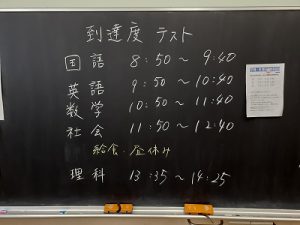 到達度 テスト
国語 8:50～9:40
英語 9:50～10:40
数学 10:50～11:40
社会 11:50～12:40
給食・昼休み
理科 13:35～14:25